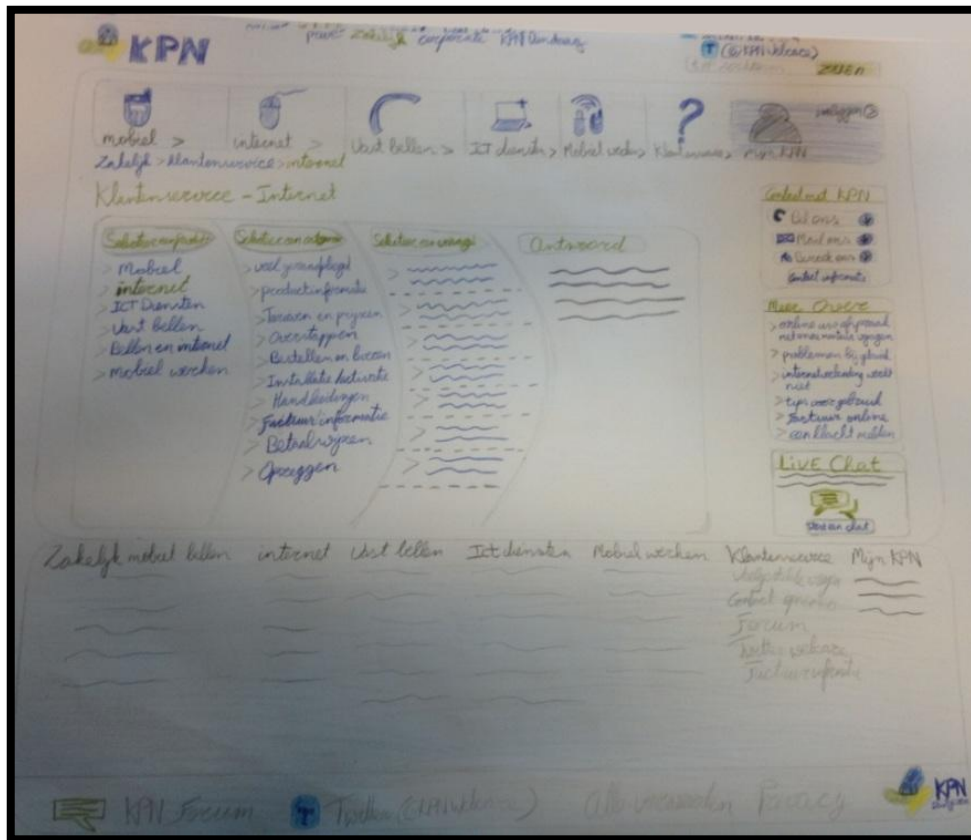 KPN
privé zakelijk corporate KPN Vandaag
(@KPNwebcare)
zoeken
mobiel >
internet >
Vast bellen >
ICT diensten >
Mobiel werken >
Klantenservice >
Mijn KPN
inloggen
Zakelijk > klantenservice > internet
Klantenservice - Internet
Antwoord
> Mobiel
> internet
> ICT Diensten
> Vast bellen
> Bellen en internet
> mobiel werken
> productinformatie
> Tarieven en prijzen
> Overstappen
> Handleidingen
> Factuur informatie
> Betaalwijzen
> Opzeggen
Contact met KPN
Bel ons
Mail ons
Bezoek ons
Contact informatie
Meer Over
> problemen bij geluid
> internetverbinding werkt
niet
> tips voor gebruik
> factuur online
> een klacht melden
LiVE Chat
Start een chat
Zakelijk mobiel bellen
internet
Vast bellen
Ict diensten
Mobiel werken
Klantenservice
Mijn KPN
Contact opnemen
Forum
Twitter webcare
Factuurinformatie
KPN Forum
Twitter (@KPNwebcare)
Alle voorwaarden
Privacy
KPN